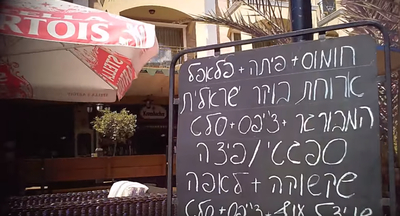 RTOIS
ARTOIS
חומוס + פיתה + פלאפל
ארוחת בוקר ישראלית
המבורגר + צ'יפס + סלט
ספגטי / פיצה
שקשוקה + לאפה
שניצל עוף + צ'יפס + סלט